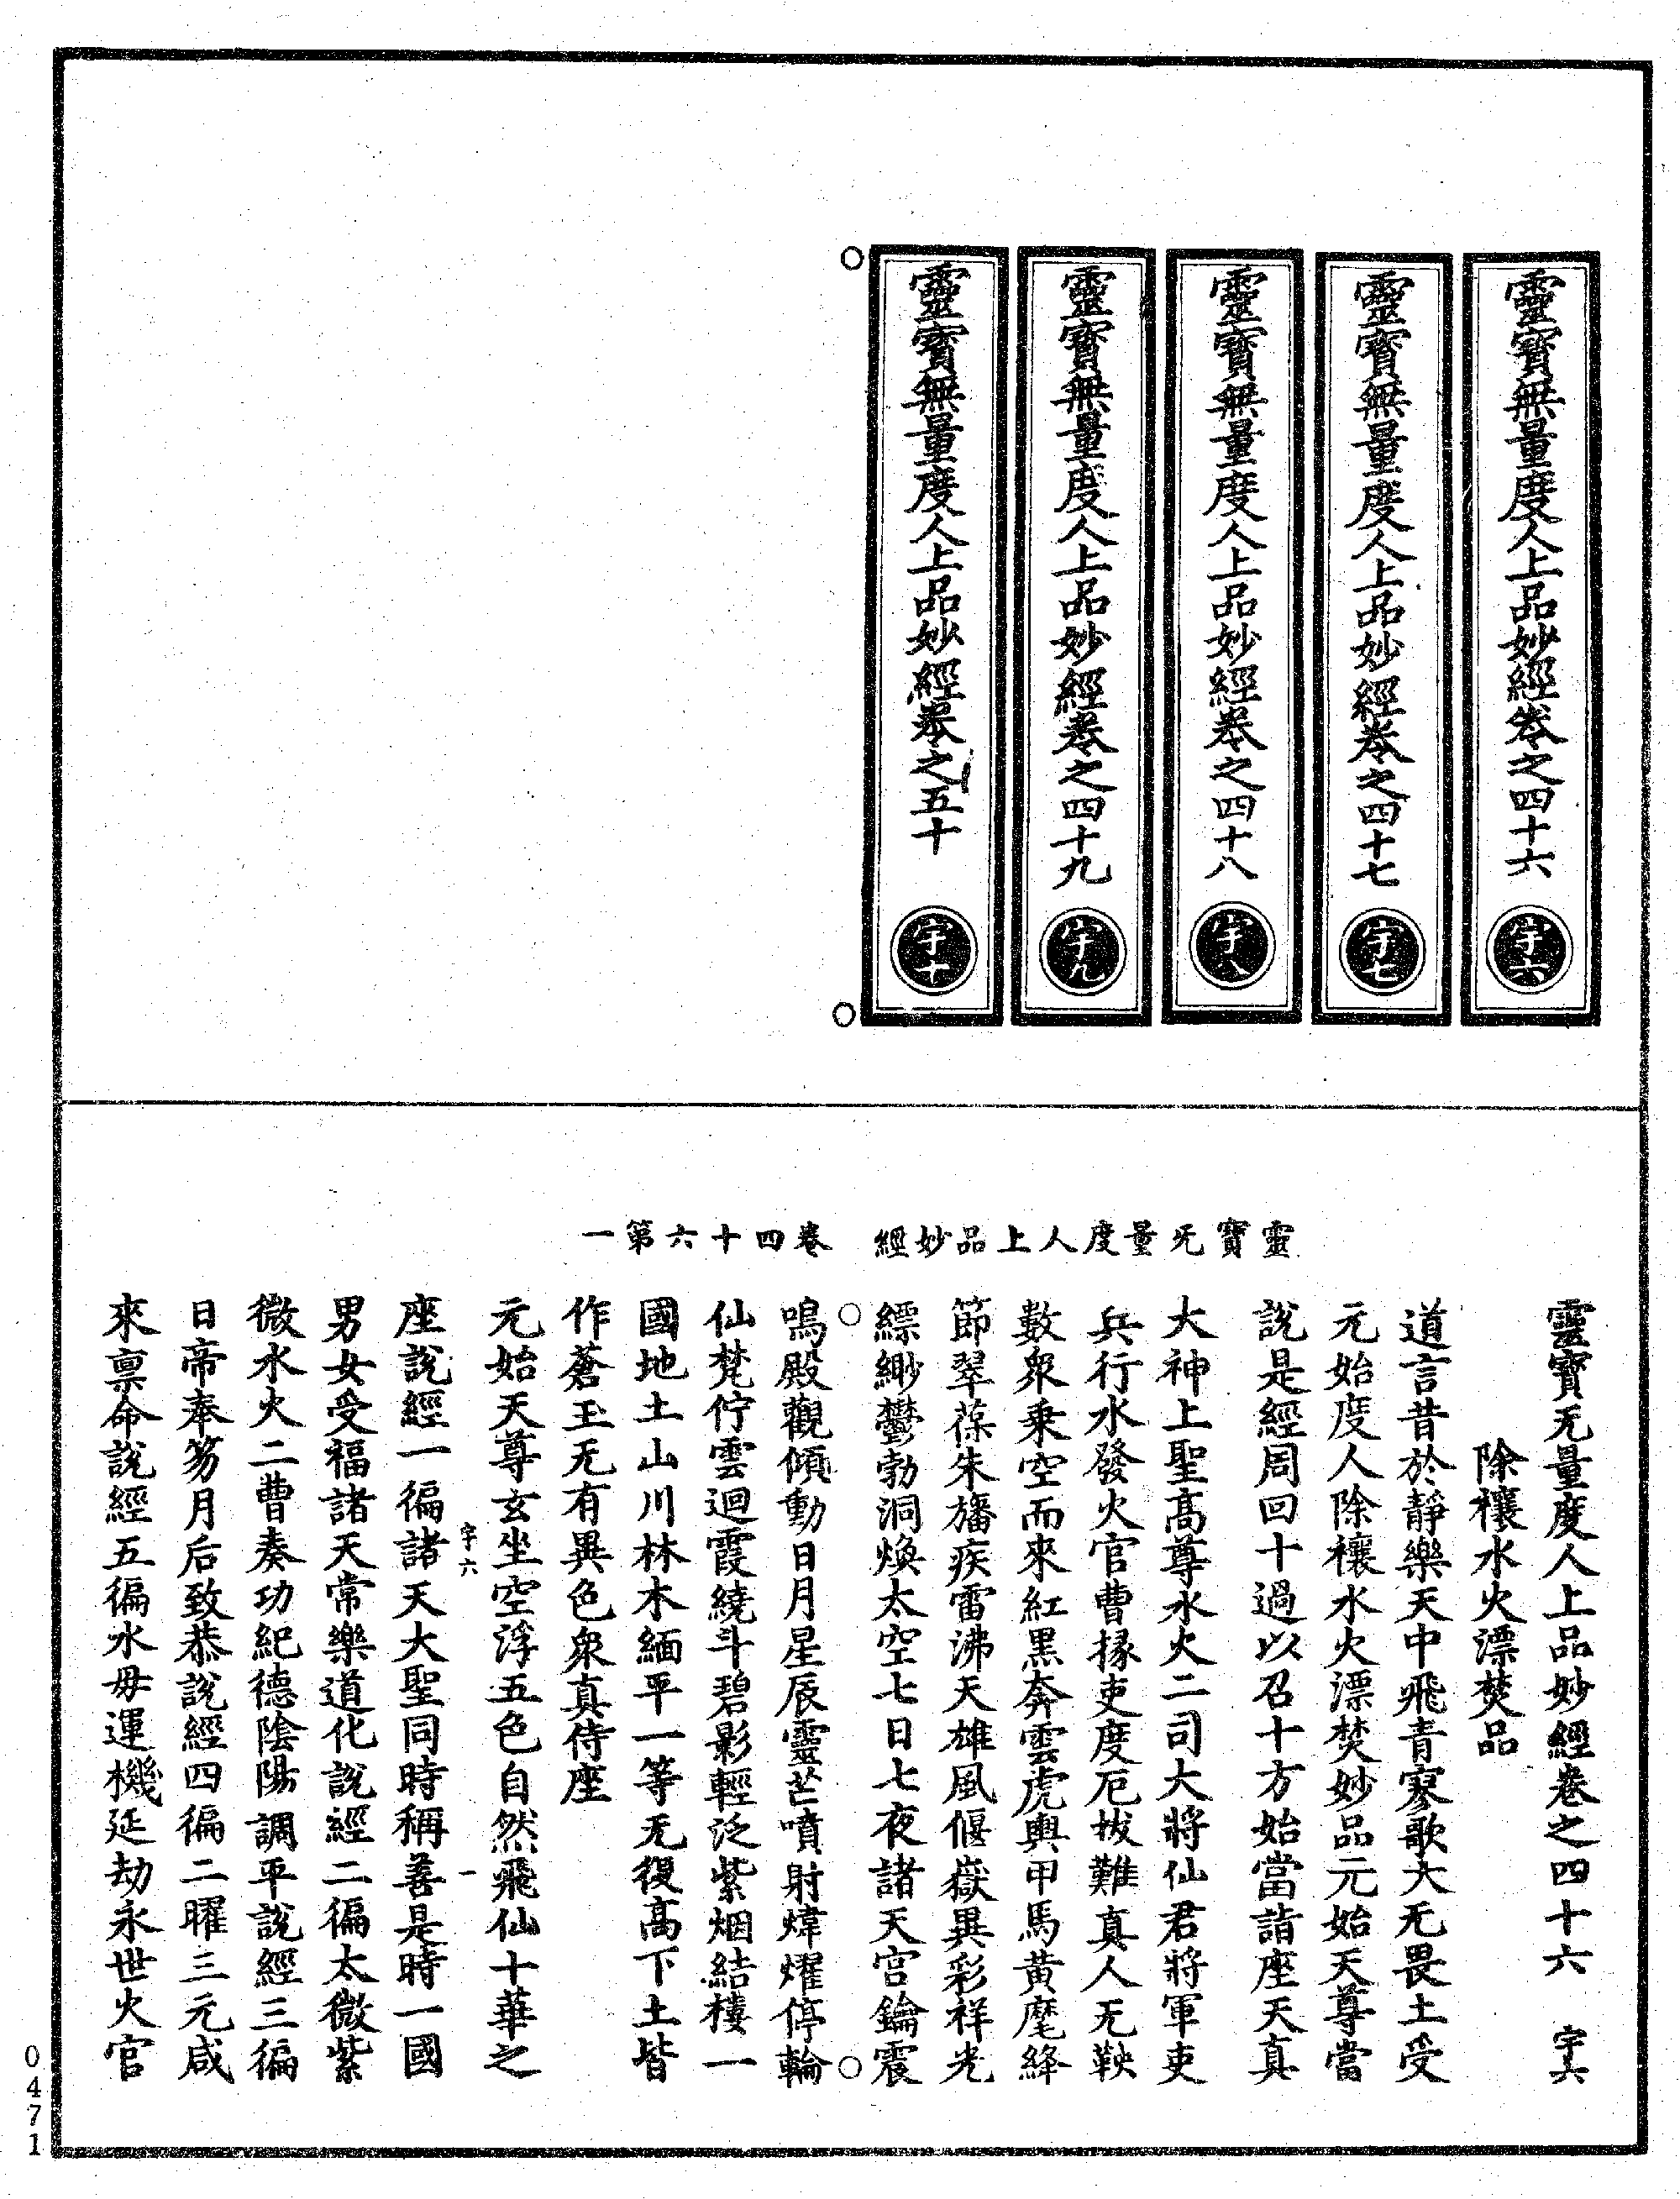 靈寶無量度人上品妙經卷之四十六 宇六
靈寶無量度人上品妙經卷之四十七 宇七
靈寶無量度人上品妙經卷之四十八 宇八
靈寶無量度人上品妙經卷之四十九 宇九
靈寶無量度人上品妙經卷之五十 宇十
靈寶无量度人上品妙經 卷四十六第一
靈寶无量度人上品妙經卷之四十六 宇六
除禳水火漂焚品
道言昔於靜樂天中飛青寥歌大无畏土受
元始度人除禳水火漂焚妙品元始天尊當
說是經周回十過以召十方始當詣座天真
大神上聖高尊水火二司大將仙君將軍吏
兵行水發火官曹掾吏度厄拔難真人无鞅
數衆乘空而來紅黑奔雲虎輿甲馬黃麾絳
節翠葆朱旛疾雷沸天雄風偃嶽異彩祥光
縹緲鬱勃洞煥太空七日七夜諸天宮鑰震
鳴殿觀傾動日月星辰靈芒噴射煒燿停輪
仙梵佇雲迴霞繞斗碧影輕泛紫烟結樓一
國地土山川林木緬平一等无復高下土皆
作蒼玉无有異色衆真侍座
元始天尊玄坐空浮五色自然飛仙十華之
宇六 一
座說經一徧諸天大聖同時稱善是時一國
男女受福諸天常樂道化說經二徧太微紫
微水火二曹奏功紀德陰陽調平說經三徧
日帝奉笏月后致恭說經四徧二曜三元咸
來稟命說經五徧水母運機延劫永世火官
0471